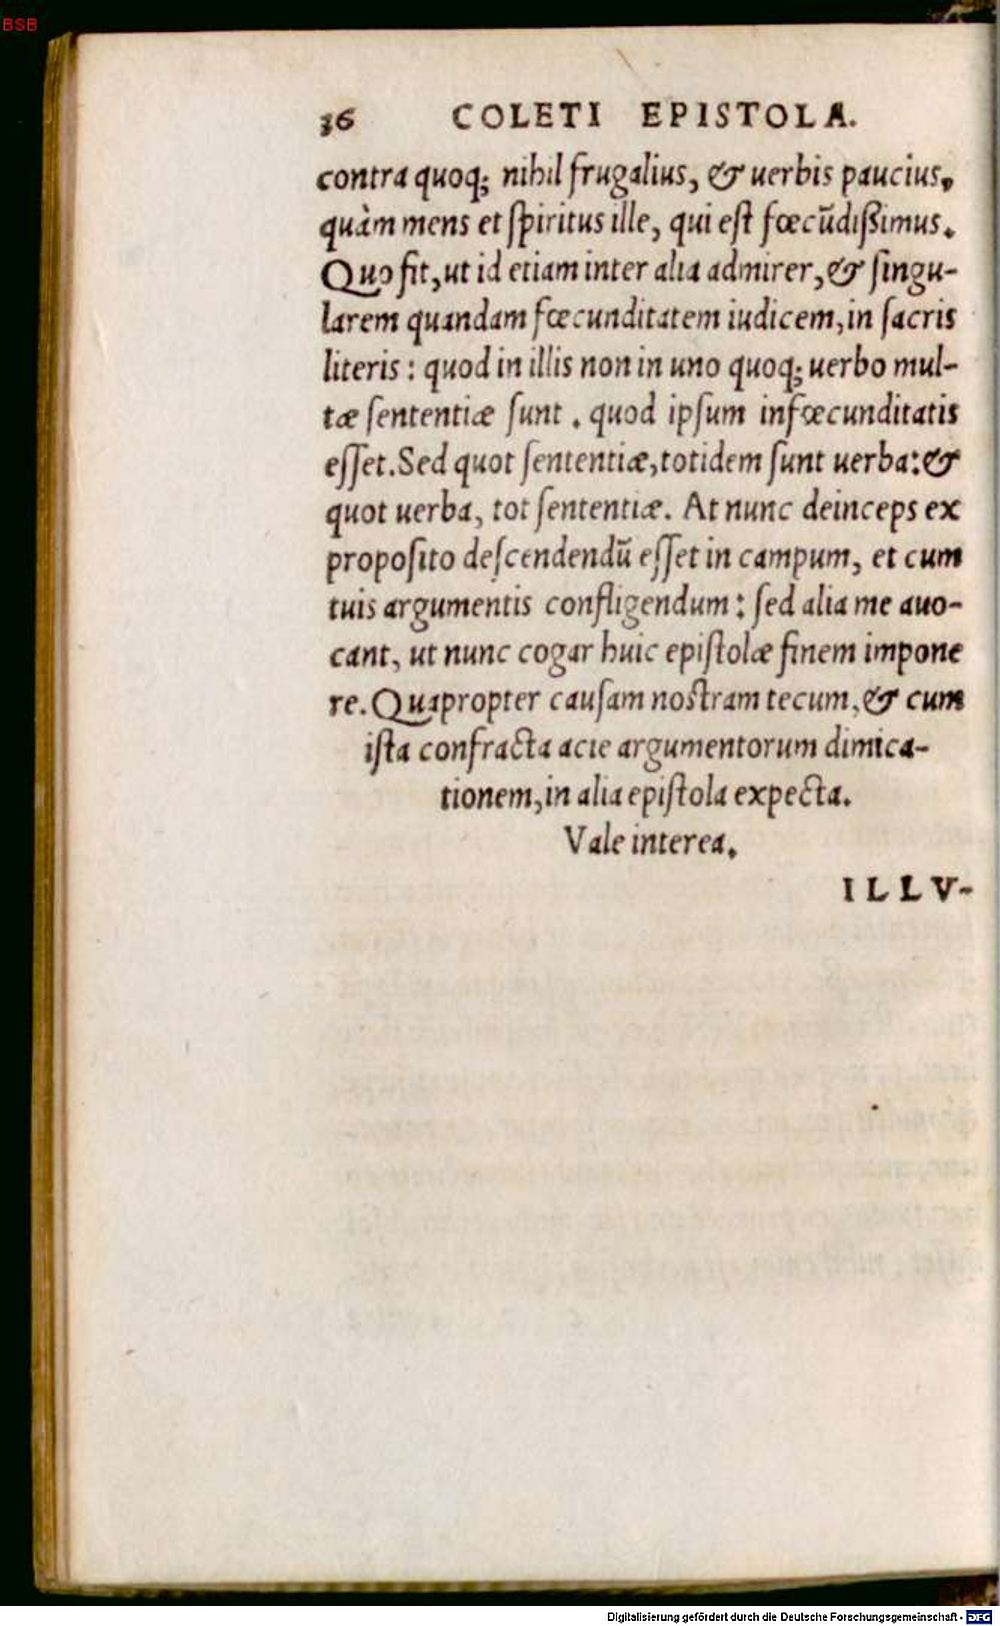 BSB
36 COLETI EPISTOLA.
contra quoq; nihil frugalius, & uerbis paucius,
quàm mens et ſpiritus ille, qui eſt fœcūdiſsimus.
Quo fit, ut id etiam inter alia admirer, & ſingu-
larem quandam fœcunditatem iudicem, in ſacris
literis: quod in illis non in uno quoq; uerbo mul-
tæ ſententiæ ſunt. quod ipſum infœcunditatis
eſſet. Sed quot ſententiæ, totidem ſunt uerba: &
quot uerba, tot ſententiæ. At nunc deinceps ex
propoſito deſcendendū eſſet in campum, et cum
tuis argumentis confligendum: ſed alia me auo-
cant, ut nunc cogar huic epiſtolæ finem impone
re. Quapropter cauſam noſtram tecum, & cum
iſta confracta acie argumentorum dimica-
tionem, in alia epiſtola expecta.
Vale interea.
ILLV-
Digitalisierung gefördert durch die Deutsche Forschungsgemeinschaft - DFG